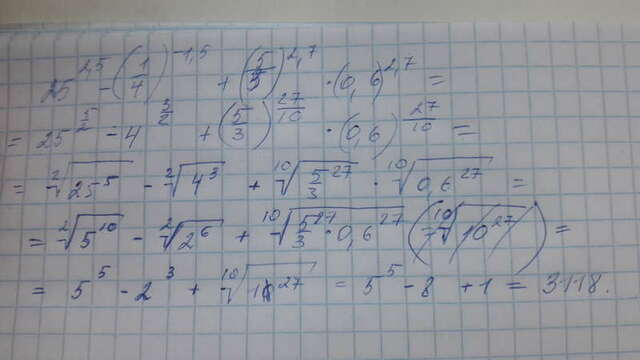 25^{2,5} - (1/4)^{-1,5} + (5/3)^{2,7} · (0,6)^{2,7} =
= 25^{5/2} - 4^{3/2} + (5/3)^{27/10} · (0,6)^{27/10} =
= ²√25^5 - ²√4^3 + ¹⁰√(5/3)^{27} · ¹⁰√0,6^{27} =
= ²√5^{10} - ²√2^6 + ¹⁰√(5/3)^{27} · 0,6^{27} =
= 5^5 - 2^3 + ¹⁰√1^{27} = 5^5 - 8 + 1 = 3118.